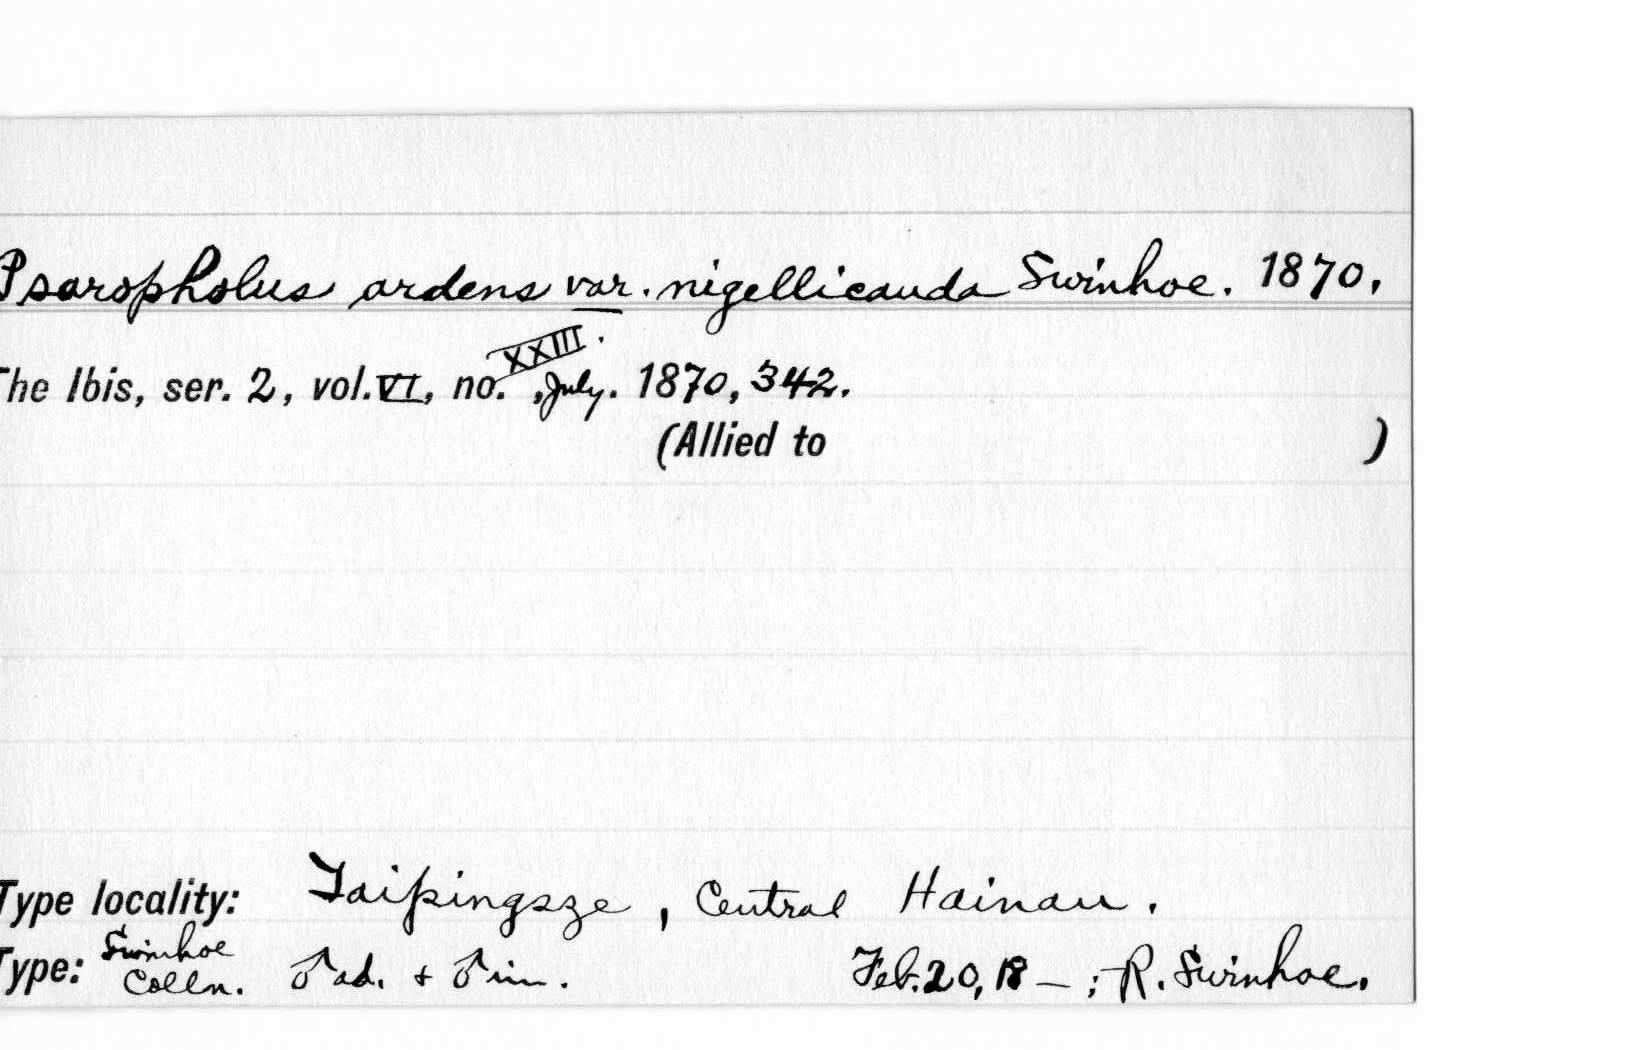 Psaropholus ardens var. nigellicauda Swinhoe. 1870.
The Ibis, ser. 2, vol. VI, no. XXIII. , July. 1870, 342.
(Allied to )
Type locality: Taipingsze, Central Hainan.
Type: Swinhoe Colln. ♂ ad. + ♂ im. Feb. 20, 18 — ; R. Swinhoe.